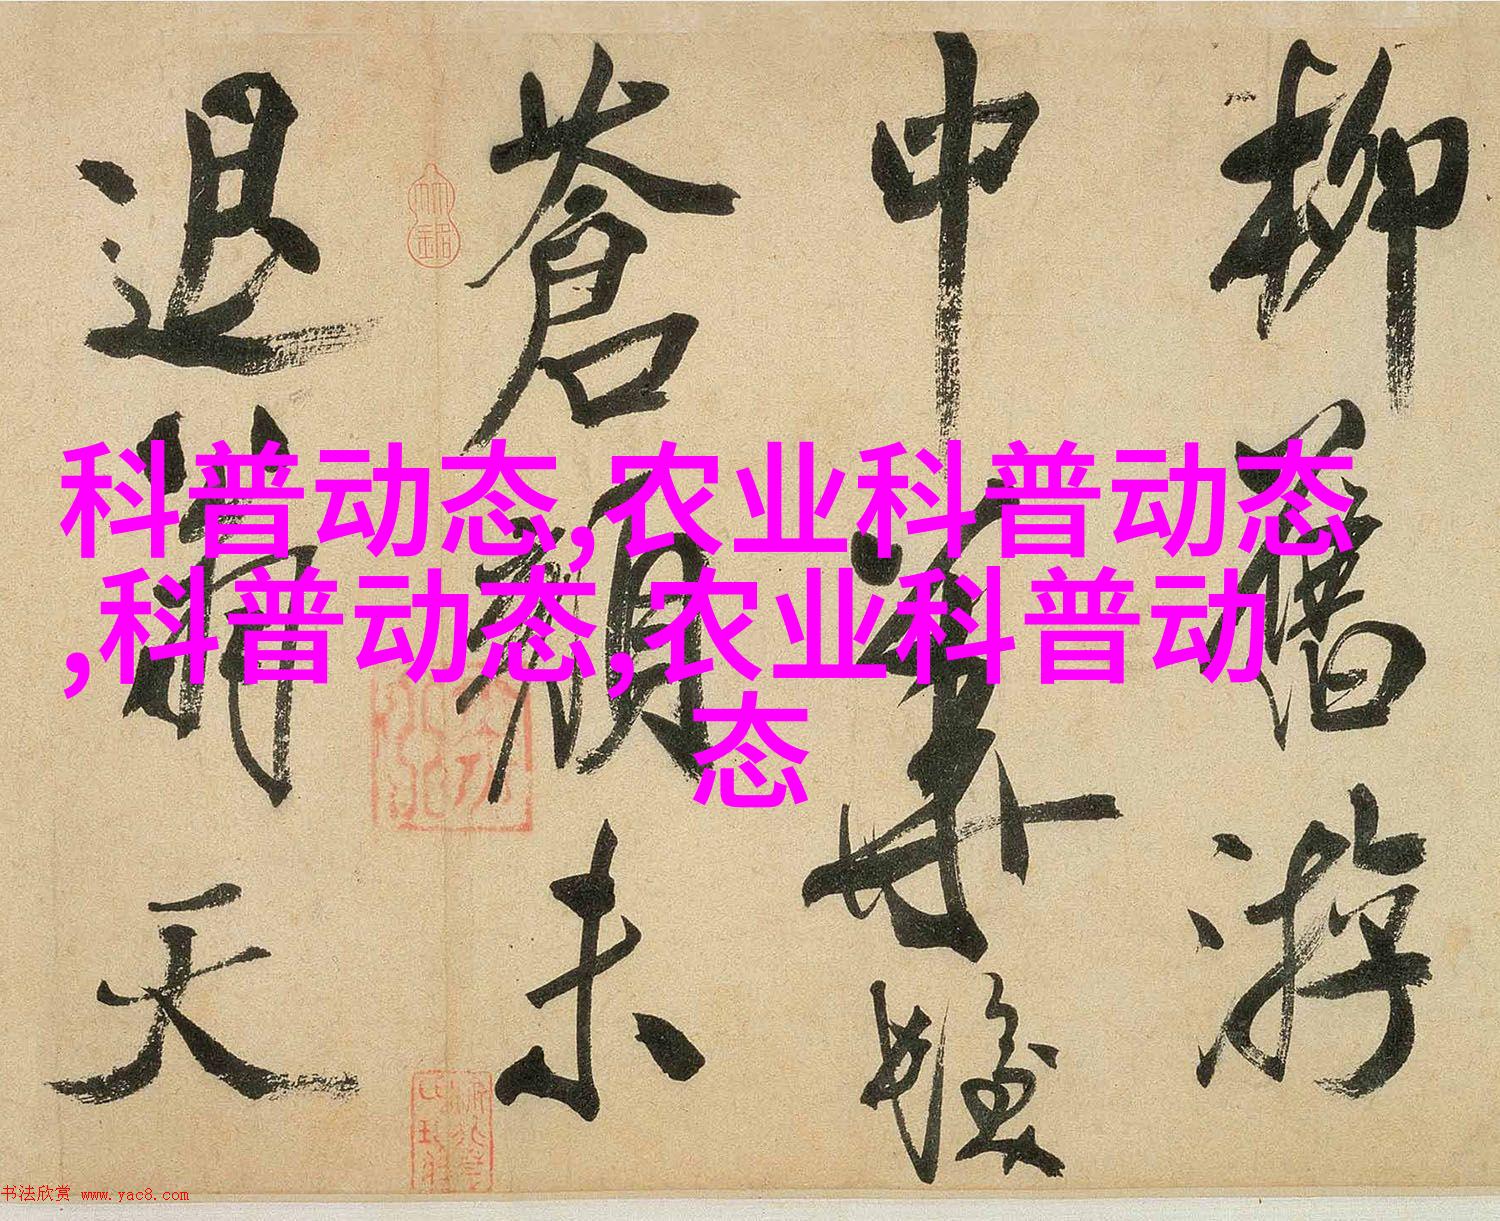 柳舊游
中華
蒼顏未
退天
科普动态,农业科普动态
,科普动态,农业科普动
态
书法欣赏 www.yac8.com